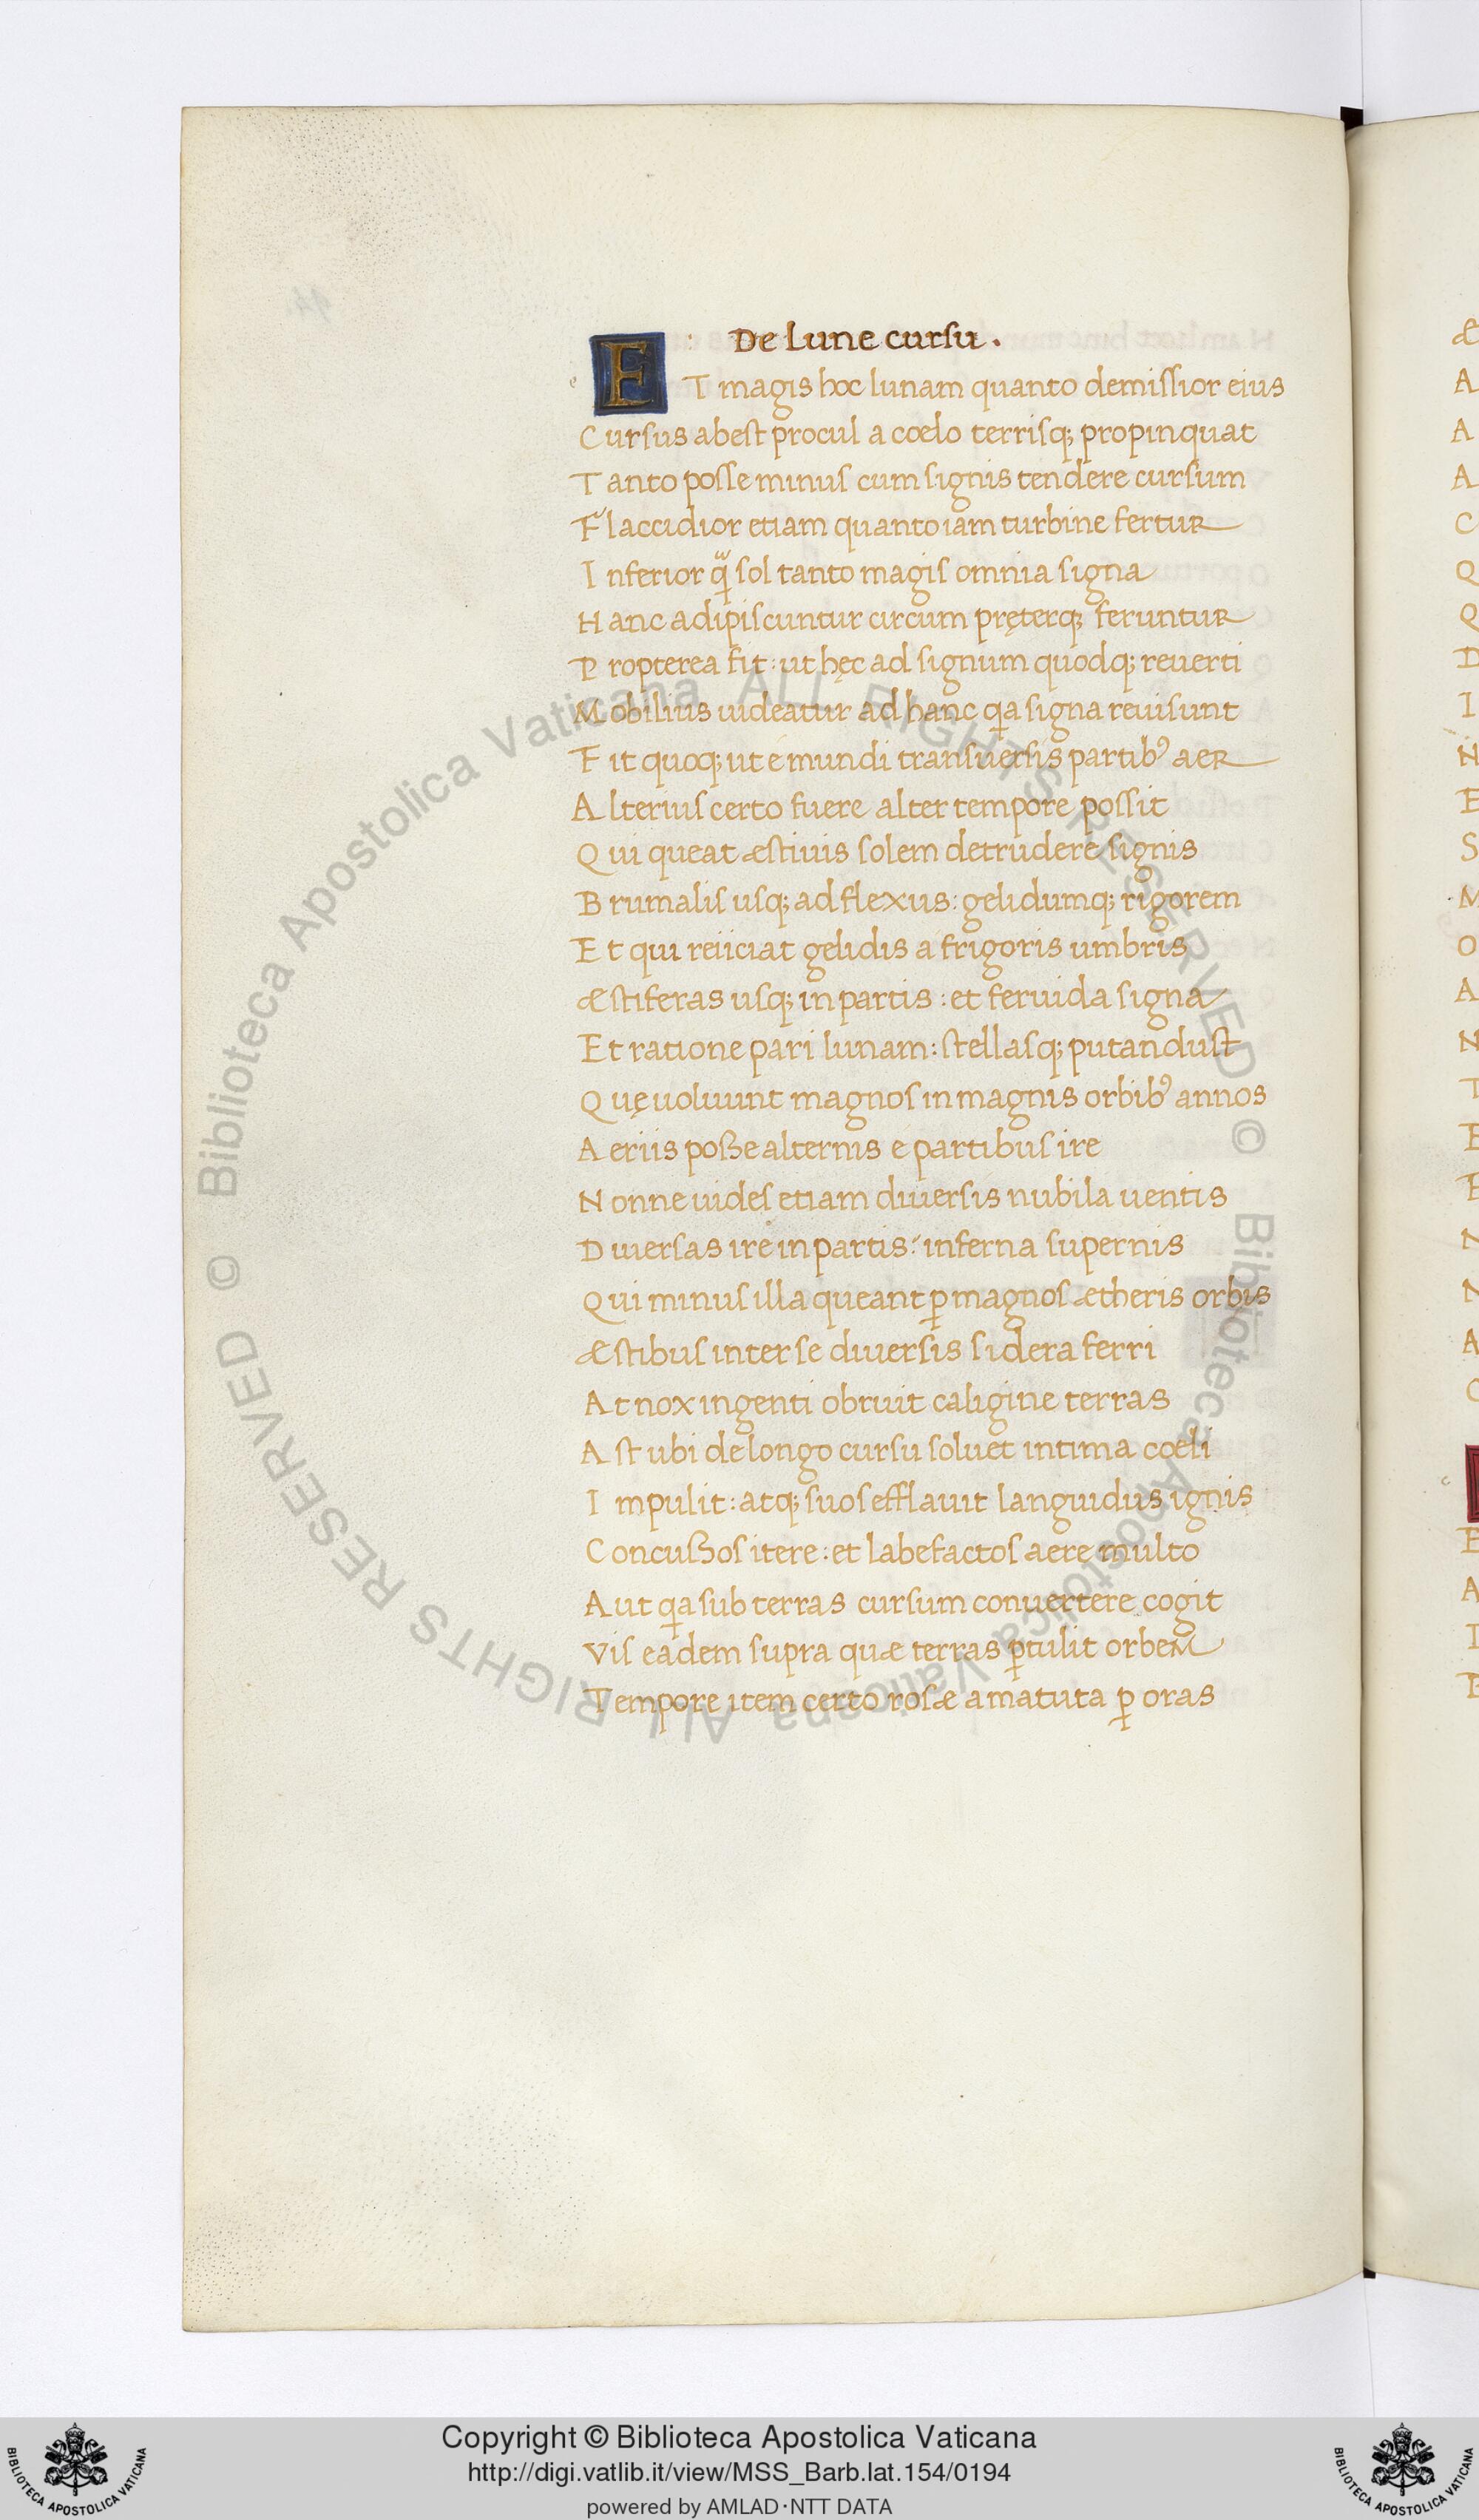 De Lune cursu.
ET magis hoc lunam quanto demissior eius
Cursus abest procul a cœlo terrisq; propinquat
Tanto posse minus cum signis tendere cursum
Flaccidior etiam quanto iam turbine fertur
Inferior q̃ sol tanto magis omnia signa
Hanc adipiscuntur circum pręterq; feruntur
Propterea fit: ut hęc ad signum quodq; reuerti
Mobilius uideatur ad hanc qa signa reuisunt
Fit quoq; ut é mundi transuersis partib9 aer
Alterius certo fuere alter tempore possit
Qui queat æstiuis solem detrudere signis
Brumalis usq; ad flexus: gelidumq; rigorem
Et qui reiiciat gelidis a frigoris umbris
Æstiferas usq; in partis: et feruida signa
Et ratione pari lunam: stellasq; putandust
Quę uoluunt magnos in magnis orbib9 annos
Aeriis poße alternis é partibus ire
Nonne uides etiam diuersis nubila uentis
Diuersas ire in partis: inferna supernis
Qui minus illa queant ꝑ magnos ætheris orbis
Æstibus inter se diuersis sidera ferri
At nox ingenti obruit caligine terras
Ast ubi de longo cursu soluet intima cœli
Impulit: atq; suos efflauit languidus ignis
Concußos itere: et labefactos aere multo
Aut qa sub terras cursum conuertere cogit
Vis eadem supra quæ terras ꝑtulit orbem
Tempore item certo rosæ amatuta ꝑ oras
© Biblioteca Apostolica Vaticana ALL RIGHTS RESERVED © Biblioteca Apostolica Vaticana ALL RIGHTS RESERVED
Copyright © Biblioteca Apostolica Vaticana
http://digi.vatlib.it/view/MSS_Barb.lat.154/0194
powered by AMLAD·NTT DATA
BIBLIOTECA APOSTOLICA VATICANA
BIBLIOTECA APOSTOLICA VATICANA